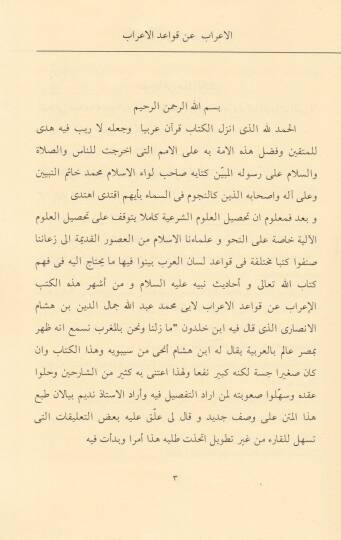 الاعراب عن قواعد الاعراب
بسم الله الرحمن الرحيم
الحمد لله الذى انزل الكتاب قرآن عربيا وجعله لا ريب فيه هدى
للمتقين وفضل هذه الامة به على الامم التى اخرجت للناس والصلاة
والسلام على رسوله المبيّن كتابه صاحب لواء الاسلام محمد خاتم النبيين
وعلى آله واصحابه الذين كالنجوم فى السماء بأيهم اقتدى اهتدى
و بعد فمعلوم ان تحصيل العلوم الشرعية كاملا يتوقف على تحصيل العلوم
الآلية خاصة على النحو و علماءنا الاسلام من العصور القديمة الى زماننا
صنفوا كتبا مختلفة فى قواعد لسان العرب بينوا فيها ما يحتاج اليه فى فهم
كتاب الله تعالى و أحاديث نبيه عليه السلام و من أشهر هذه الكتب
الإعراب عن قواعد الاعراب لابى محمد عبد الله جمال الدين بن هشام
الانصارى الذى قال فيه ابن خلدون "ما زلنا ونحن بالمغرب نسمع انه ظهر
بمصر عالم بالعربية يقال له ابن هشام أنحى من سيبويه وهذا الكتاب وان
كان صغيرا جسة لكنه كبير نفعا ولهذا اعتنى به كثير من الشارحين وحلوا
عقده وسهّلوا صعوبته لمن اراد التفصيل فيه وأراد الاستاذ نديم بيالان طبع
هذا المتن على وصف جديد و قال لى علّق عليه بعض التعليقات التى
تسهل للقاره من غير تطويل اتخذت طلبه هذا أمرا وبدأت فيه
٣